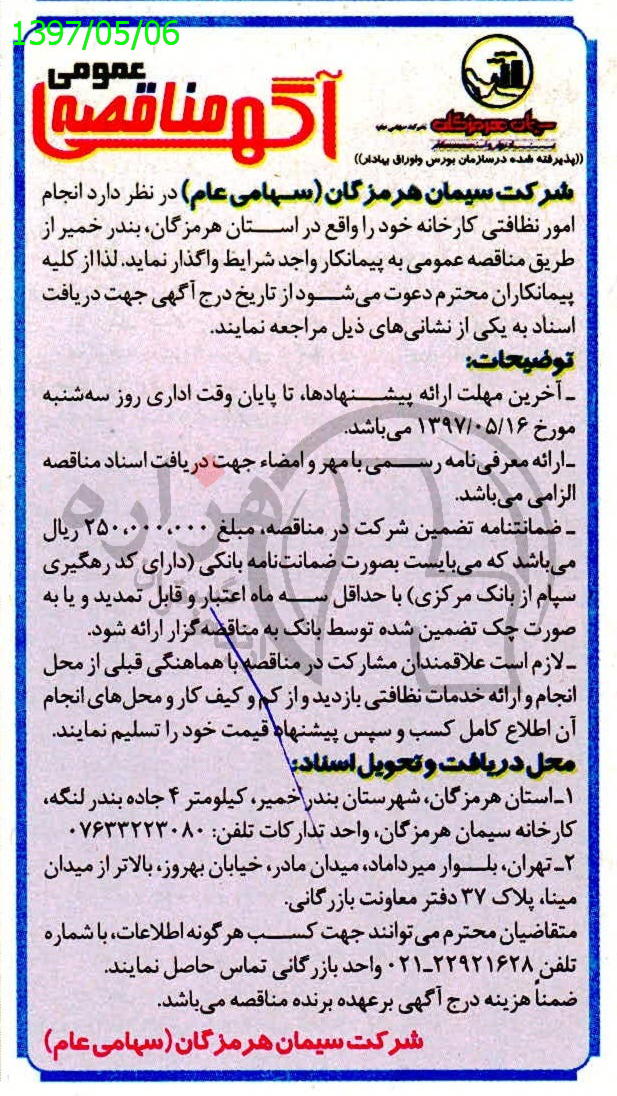 1397/05/06
آگهی مناقصه عمومی
سیمان هرمزگان
((پذیرفته شده درسازمان بورس واوراق بهادار))
شرکت سیمان هرمزگان (سهامی عام) در نظر دارد انجام
امور نظافتی کارخانه خود را واقع در استان هرمزگان، بندر خمیر از
طریق مناقصه عمومی به پیمانکار واجد شرایط واگذار نماید. لذا از کلیه
پیمانکاران محترم دعوت می‌شود از تاریخ درج آگهی جهت دریافت
اسناد به یکی از نشانی‌های ذیل مراجعه نمایند.
توضیحات:
ـ آخرین مهلت ارائه پیشنهادها، تا پایان وقت اداری روز سه‌شنبه
مورخ ۱۳۹۷/۰۵/۱۶ می‌باشد.
ـ ارائه معرفی‌نامه رسمی با مهر و امضاء جهت دریافت اسناد مناقصه
الزامی می‌باشد.
ـ ضمانتنامه تضمین شرکت در مناقصه، مبلغ ۲۵۰،۰۰۰،۰۰۰ ریال
می‌باشد که می‌بایست بصورت ضمانت‌نامه بانکی (دارای کد رهگیری
سپام از بانک مرکزی) با حداقل سه ماه اعتبار و قابل تمدید و یا به
صورت چک تضمین شده توسط بانک به مناقصه‌گزار ارائه شود.
ـ لازم است علاقمندان مشارکت در مناقصه با هماهنگی قبلی از محل
انجام و ارائه خدمات نظافتی بازدید و از کم و کیف کار و محل‌های انجام
آن اطلاع کامل کسب و سپس پیشنهاد قیمت خود را تسلیم نمایند.
محل دریافت و تحویل اسناد:
۱ـ استان هرمزگان، شهرستان بندر خمیر، کیلومتر ۴ جاده بندر لنگه،
کارخانه سیمان هرمزگان، واحد تدارکات تلفن: ۰۷۶۳۳۲۲۳۰۸۰
۲ـ تهران، بلوار میرداماد، میدان مادر، خیابان بهروز، بالاتر از میدان
مینا، پلاک ۳۷ دفتر معاونت بازرگانی.
متقاضیان محترم می‌توانند جهت کسب هرگونه اطلاعات، با شماره
تلفن ۲۲۹۲۱۶۲۸ـ۰۲۱ واحد بازرگانی تماس حاصل نمایند.
ضمناً هزینه درج آگهی بر عهده برنده مناقصه می‌باشد.
شرکت سیمان هرمزگان (سهامی عام)